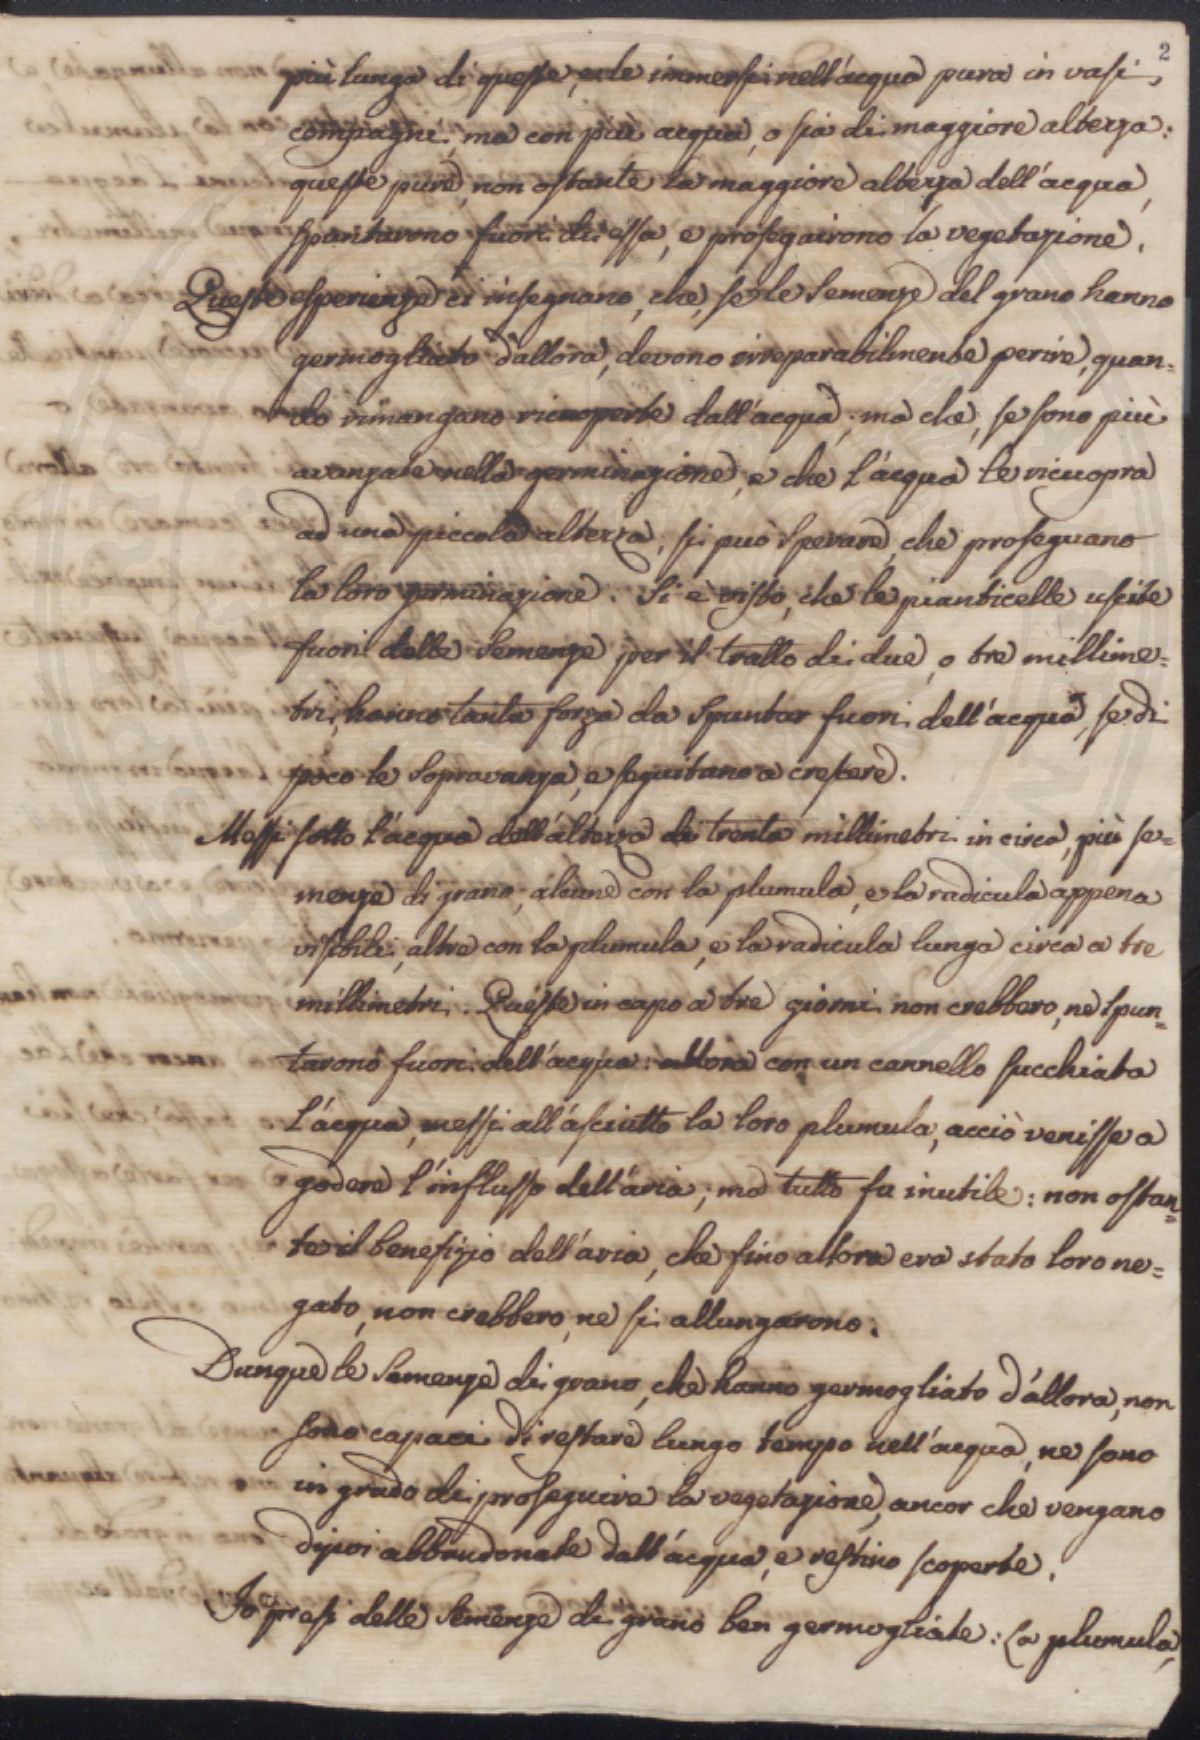 2
più lunga di queste, e le immersi nell'acqua pura in vasi
compagni, ma con più acqua, o sia di maggiore altezza:
queste pure, non ostante la maggiore altezza dell'acqua,
spuntarono fuori di essa, e proseguirono la vegetazione.
Queste esperienze ci insegnano, che, se le semenze del grano hanno
germogliato d'allora, devono irreparabilmente perire, quan=
do rimangano ricuoperte dall'acqua; ma che, se sono più
avanzate nella germinazione, e che l'acqua le ricuopra
ad una piccola altezza, si può sperare, che proseguano
la loro germinazione. Si è visto, che le pianticelle uscite
fuori delle semenze per il tratto di due, o tre millime=
tri, hanno tanta forza da spuntar fuori dell'acqua, se di
poco le sopravanza, e seguitano a crescere.
Messi sotto l'acqua dell'altezza di trenta millimetri in circa, più se=
menze di grano, alcune con la plumula, e la radicula appena
visibili, altre con la plumula, e la radicula lunga circa a tre
millimetri. Queste in capo a tre giorni non crebbero, nè spun=
tarono fuori dell'acqua: allora con un cannello succhiata
l'acqua, messi all'asciutto la loro plumula, acciò venisse a
godere l'influsso dell'aria; ma tutto fu inutile: non ostan=
te il benefizio dell'aria, che fino allora era stato loro ne=
gato, non crebbero, ne si allungarono.
Dunque le semenze di grano, che hanno germogliato d'allora, non
sono capaci di restare lungo tempo nell'acqua, ne sono
in grado di proseguire la vegetazione, ancor che vengano
dipoi abbandonate dall'acqua, e restino scoperte.
Io presi delle semenze di grano ben germogliate: la plumula,